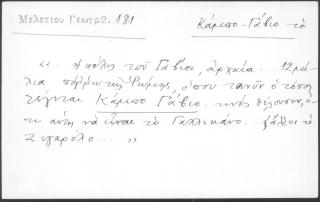 Μελετίου Γεωγρ2. 181
Κάμπο-Γάβιο τὸ
«... ἡ πόλις τοῦ Γαβίου, ἀρχαία.... 12 μί-
λια πόρρω τῆς Ῥώμης, ὅπου τανῦν ὁ τόπος
λέγεται Κάμπο Γάβιο. τινὲς θέλουσιν, ὅ-
τι αὐτὴ νὰ εἶναι τὸ Γαλλικάνο... ἄλλοι τὸ
Ζαγαρόλο.... »